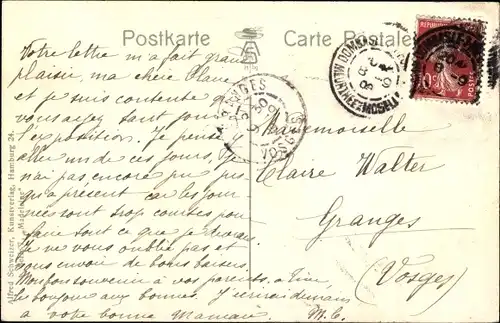 Postkarte
Carte Postale
Votre lettre m'a fait grand
plaisir, ma chère
et je suis contente que
vous ayez tant joui
l'exposition. Je pense
aller un de ces jours, Je
n'ai pas encore pu jus-
qu'à présent car les jour
nées sont trop courtes pour
faire tout ce que je devrais.
Je ne vous oublie pas et
vous envoie de bons baisers.
Mon bon souvenir à vos parents, à
le bonjour aux bonnes. J'écrirai demain
à votre bonne Maman. M. C.
Mademoiselle
Claire Walter
Granges
(Vosges)
GRANGES
VOSGES
10c
POSTES
Alfred Schweizer, Kunstverlag, Hamburg 24.
Madeleine"